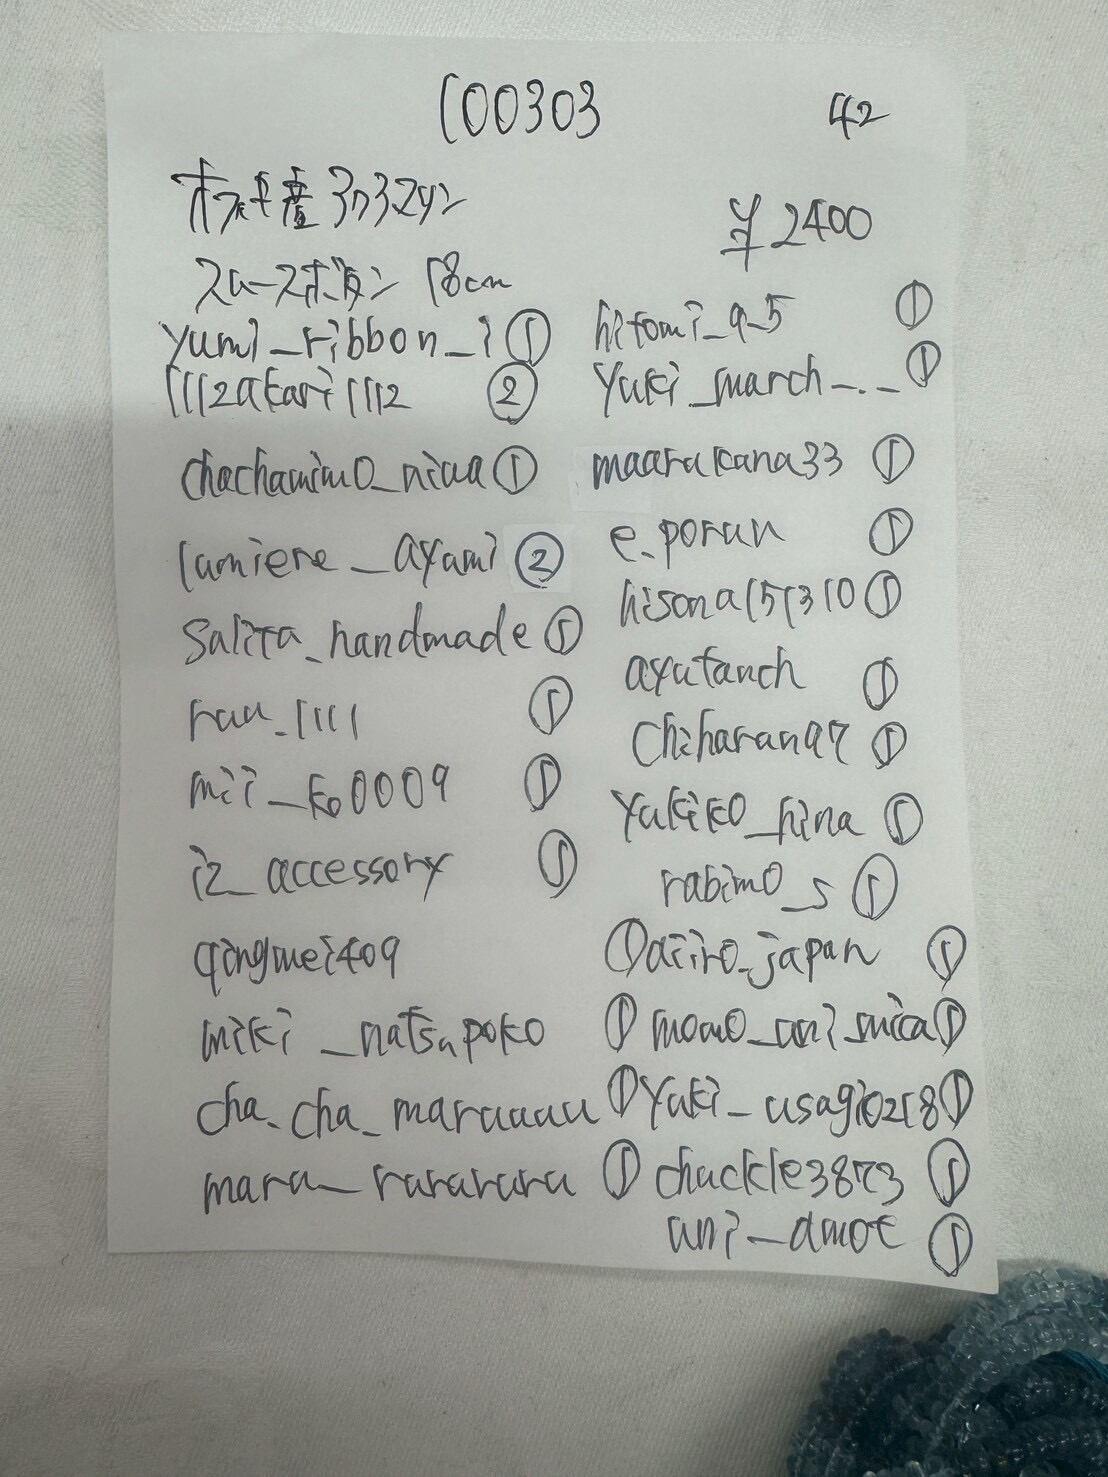 100303
42
¥2400
18cm
yumi_ribbon_i ①
1112akari1112 ②
chachamimo_niua ①
lumiere_ayami ②
salita_handmade ①
rau_1111 ①
mii_ko0009 ①
iz_accessory ①
qingmei409 ①
miki_natsupoko ①
cha_cha_maruuuu ①
maru_rurarura ①
hitomi_9_5 ①
yuki_march_._ ①
maarukana33 ①
e_porun ①
hisona151310 ①
ayutanch ①
chiharan97 ①
yukiko_hina ①
rabimo_s ①
aiiro_japan ①
momo_uni_mica ①
yuki_usagi0218 ①
chuckle3873 ①
uni_amoe ①